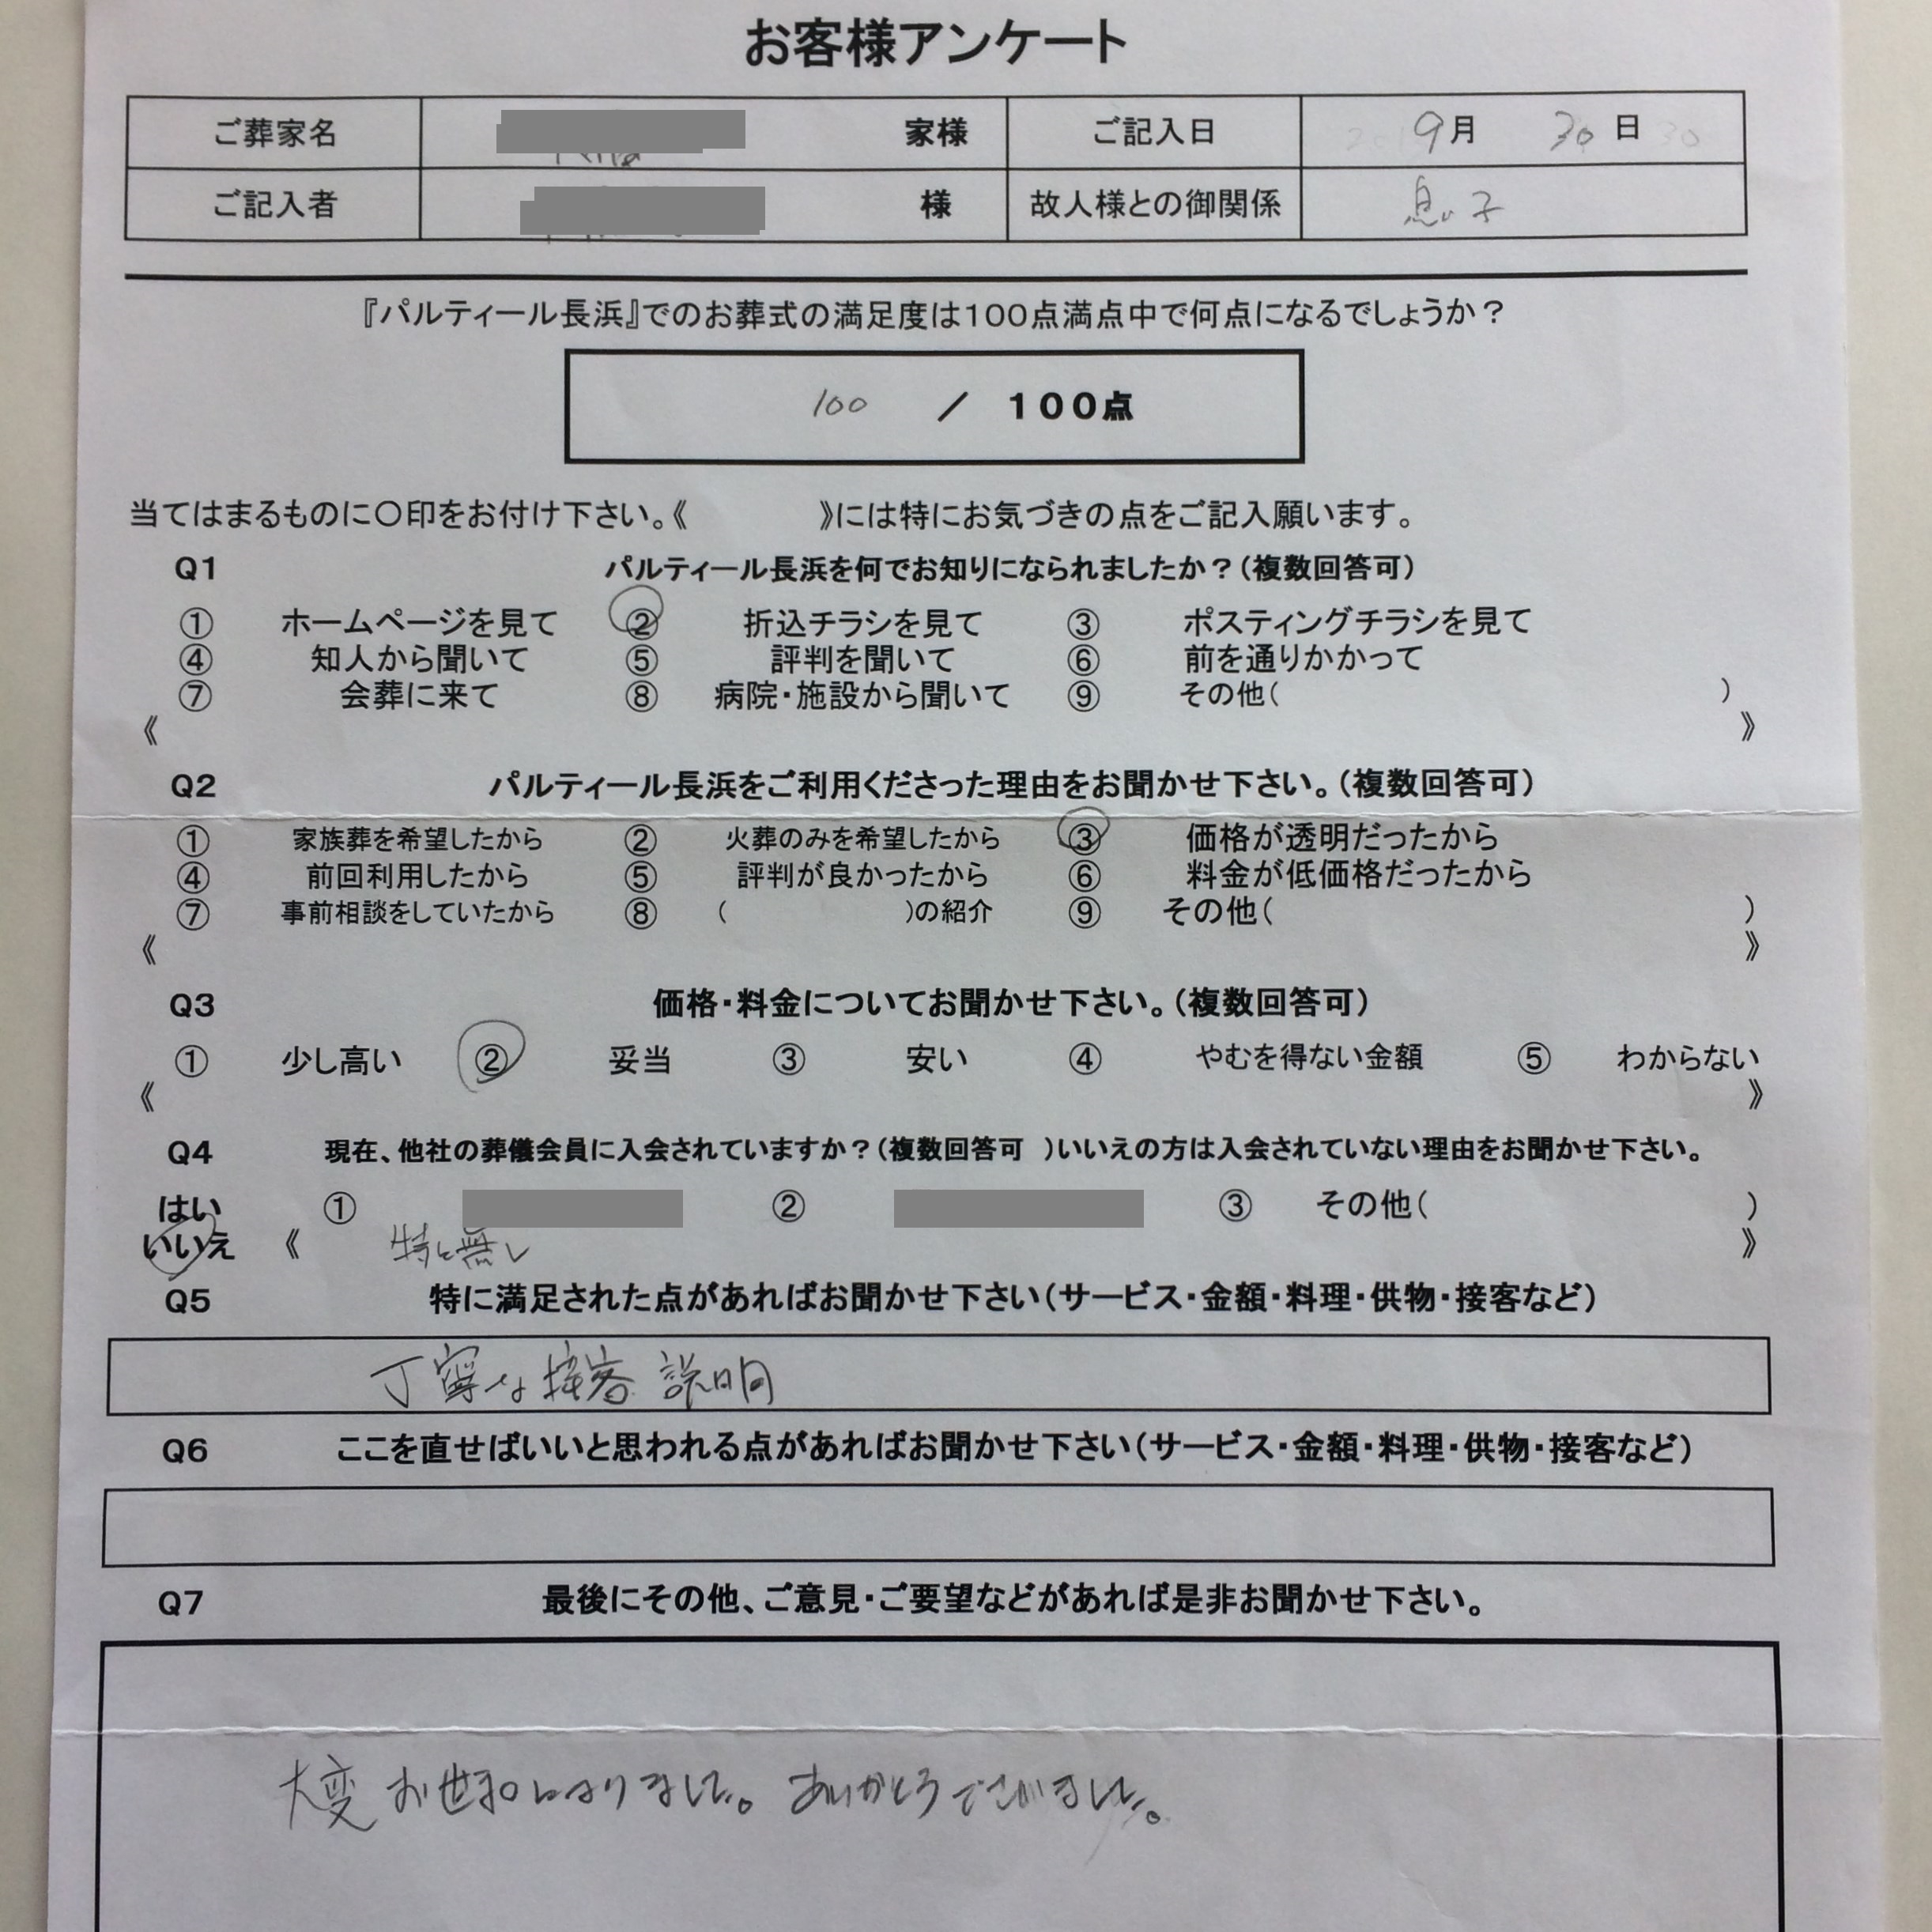 お客様アンケート
ご葬家名 家様 ご記入日 9月 30日
ご記入者 様 故人様との御関係 息子
『パルティール長浜』でのお葬式の満足度は100点満点中で何点になるでしょうか？
100 ／ 100点
当てはまるものに〇印をお付け下さい。《 》には特にお気づきの点をご記入願います。
Q1 パルティール長浜を何でお知りになられましたか？（複数回答可）
① ホームページを見て ② 折込チラシを見て ③ ポスティングチラシを見て
④ 知人から聞いて ⑤ 評判を聞いて ⑥ 前を通りかかって
⑦ 会葬に来て ⑧ 病院・施設から聞いて ⑨ その他（ ）
《 》
Q2 パルティール長浜をご利用くださった理由をお聞かせ下さい。（複数回答可）
① 家族葬を希望したから ② 火葬のみを希望したから ③ 価格が透明だったから
④ 前回利用したから ⑤ 評判が良かったから ⑥ 料金が低価格だったから
⑦ 事前相談をしていたから ⑧ （ ）の紹介 ⑨ その他（ ）
《 》
Q3 価格・料金についてお聞かせ下さい。（複数回答可）
① 少し高い ② 妥当 ③ 安い ④ やむを得ない金額 ⑤ わからない
《 》
Q4 現在、他社の葬儀会員に入会されていますか？（複数回答可 ）いいえの方は入会されていない理由をお聞かせ下さい。
はい ① ② ③ その他（ ）
いいえ 《 特に無し 》
Q5 特に満足された点があればお聞かせ下さい（サービス・金額・料理・供物・接客など）
丁寧な接客 説明
Q6 ここを直せばいいと思われる点があればお聞かせ下さい（サービス・金額・料理・供物・接客など）
Q7 最後にその他、ご意見・ご要望などがあれば是非お聞かせ下さい。
大変お世話になりました。ありがとうございました。